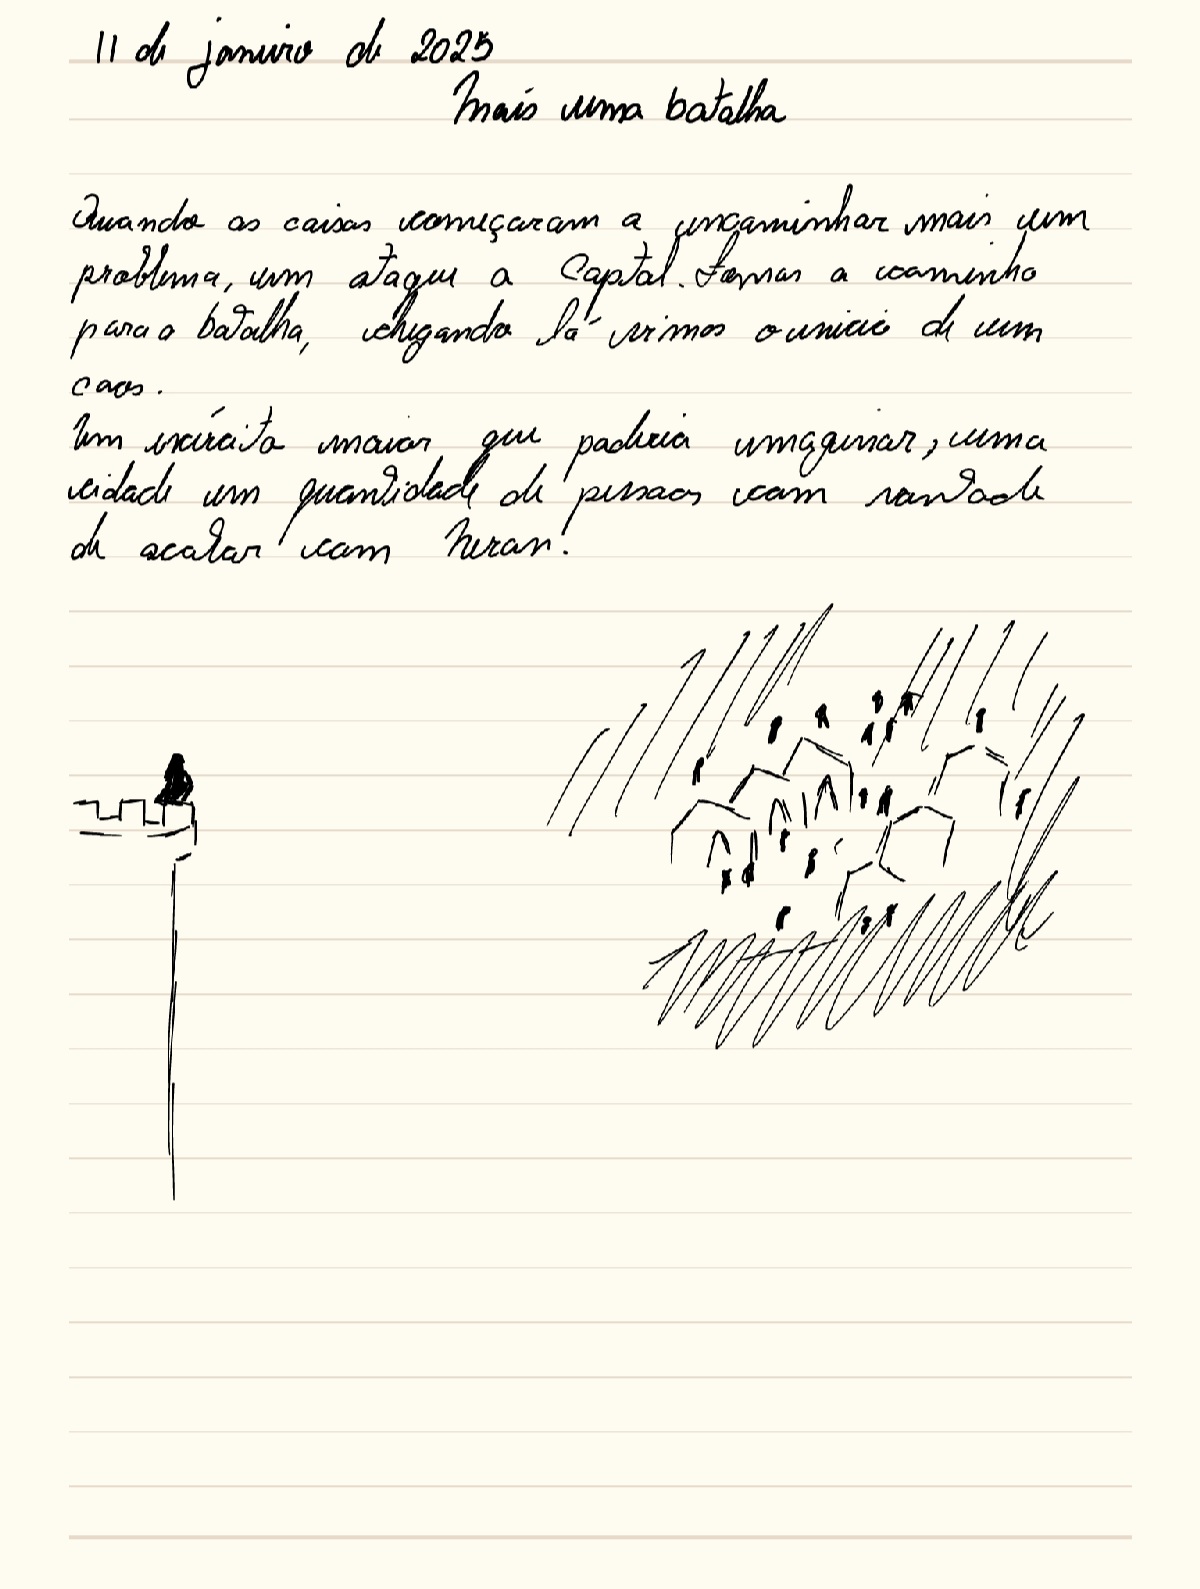 11 de janeiro de 2025
Mais uma batalha
Quando as coisas começaram a encaminhar mais um
problema, um ataque a Capital. Fomos a caminho
para a batalha, chegando lá vimos o inicio de um
caos.
Um exército maior que poderia imaginar, uma
cidade em quantidade de pessoas com vontade
de acabar com Neran!